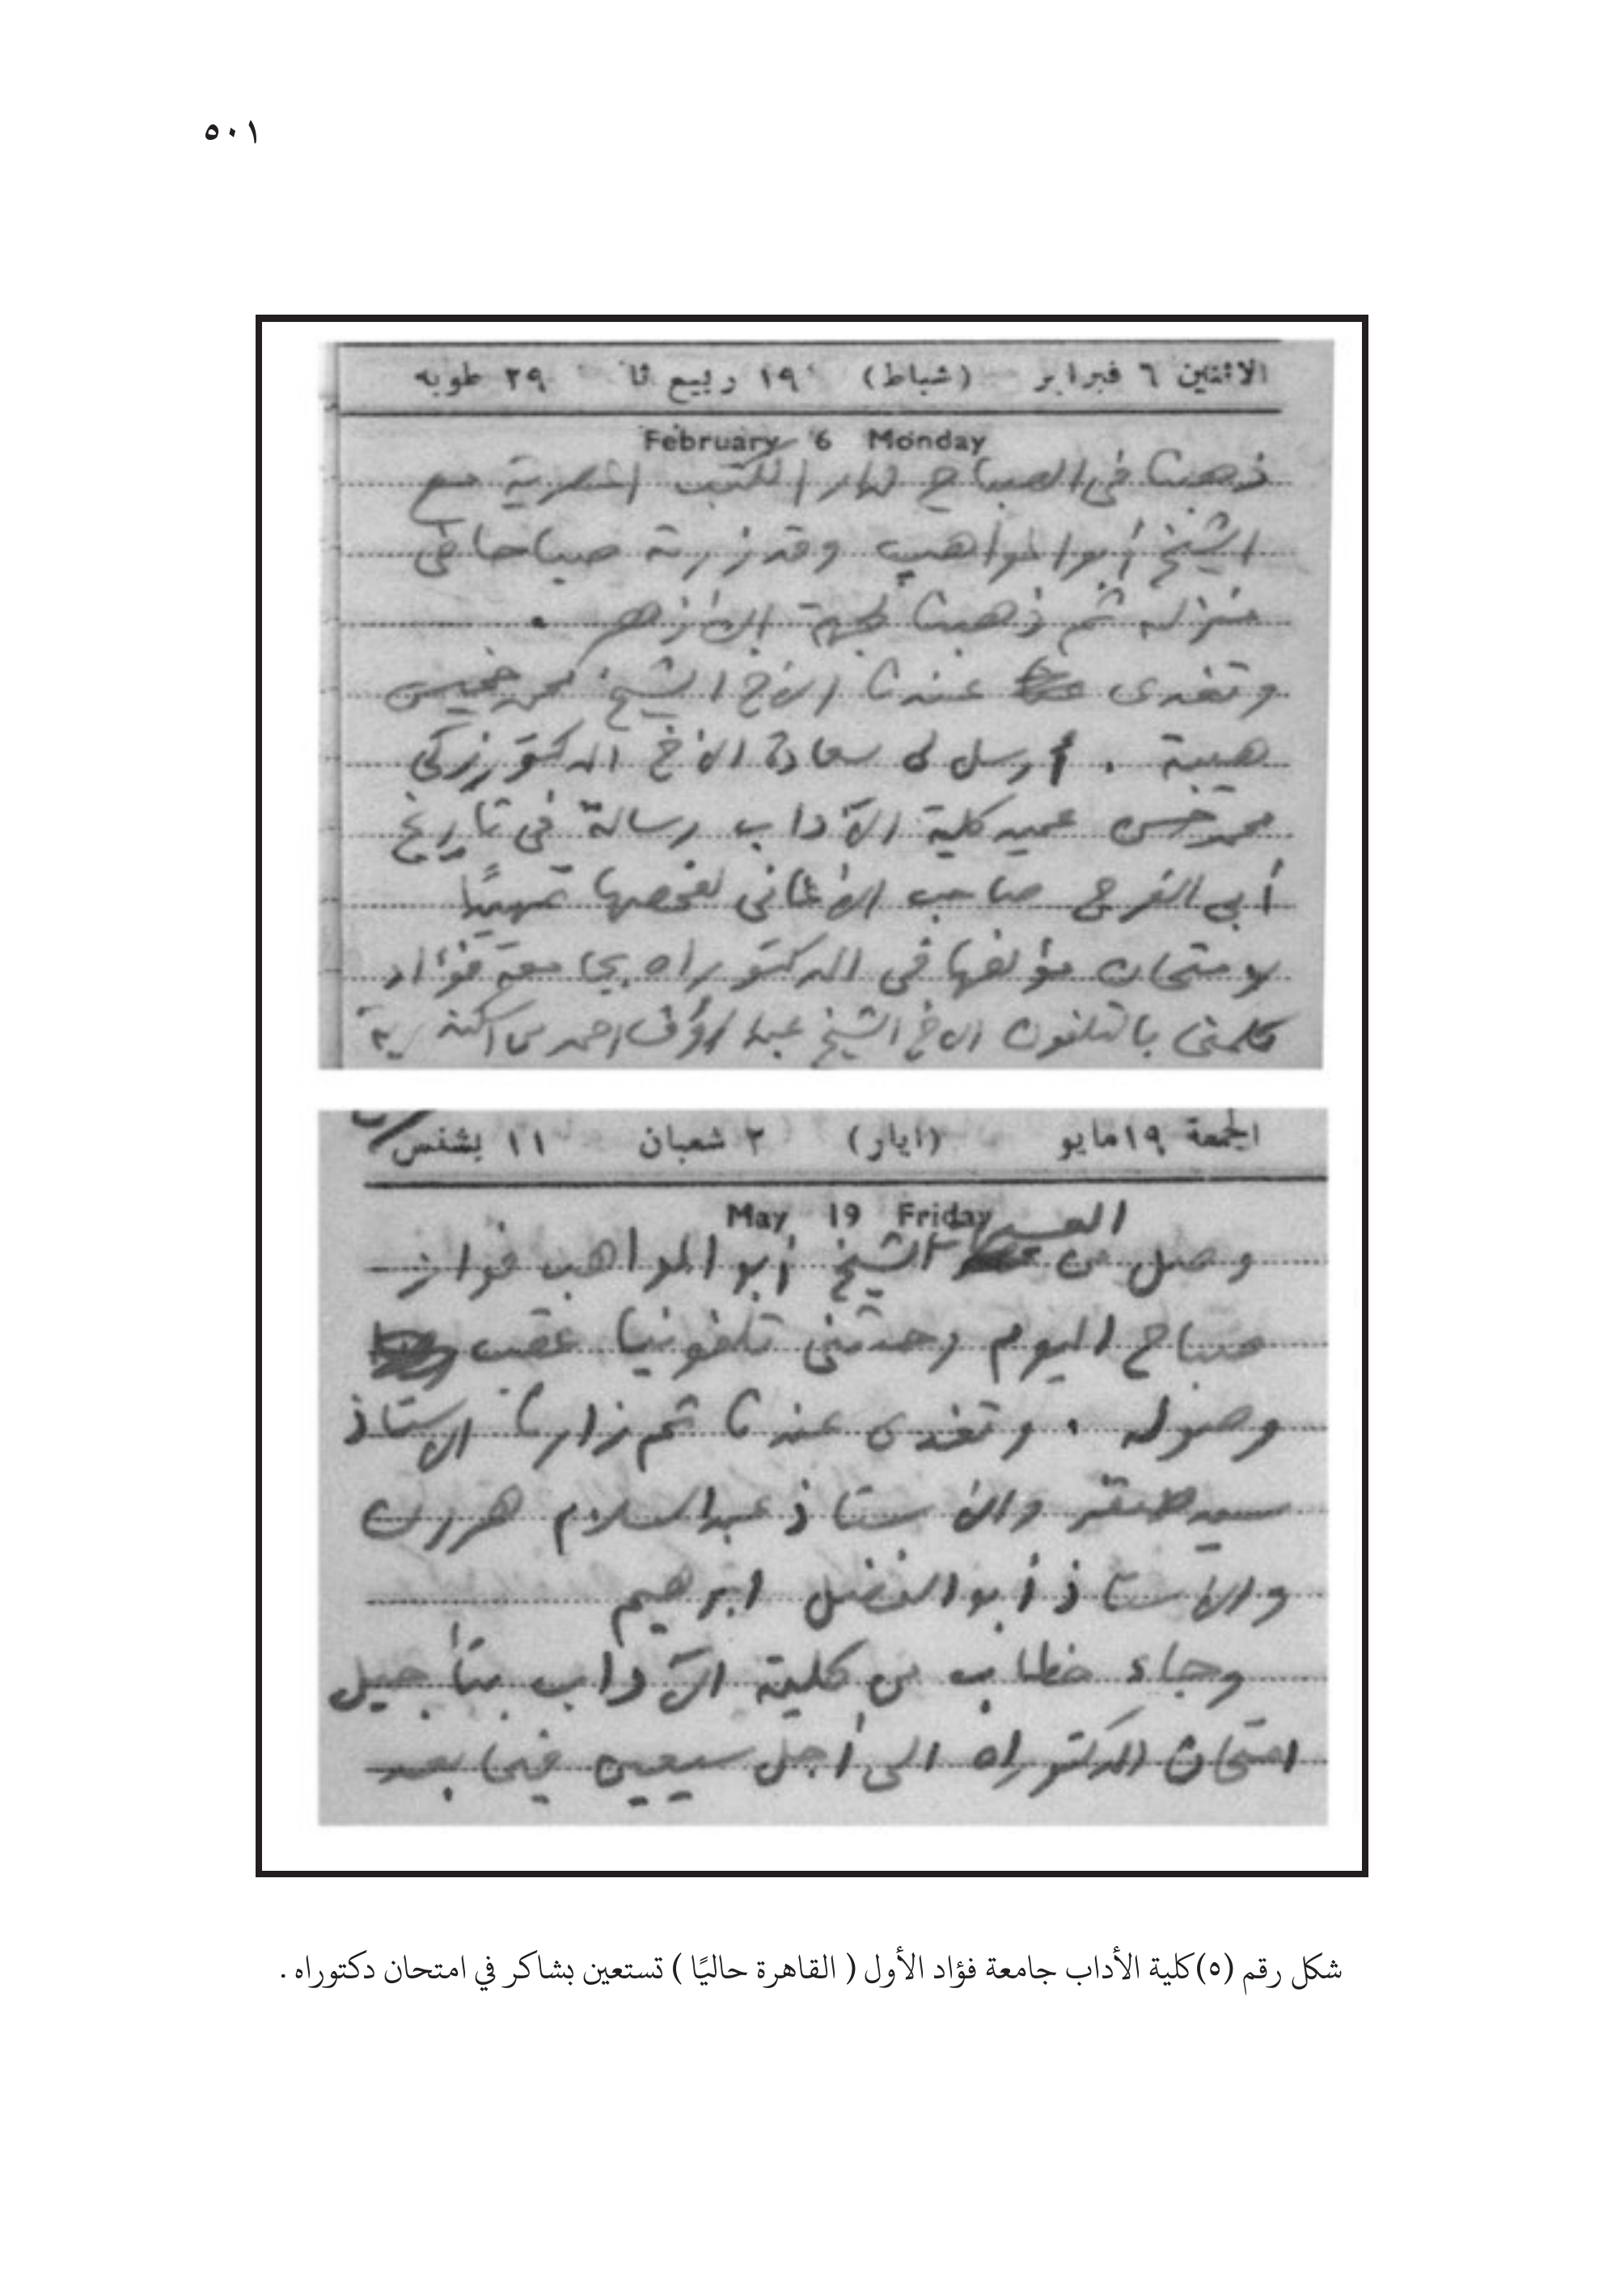 ٥٠١
الاثنين ٦ فبراير (شباط) ١٩ ربيع ثا ٢٩ طوبه
February 6 Monday
ذهبنا فى الصباح لدار الكتب المصرية مع
الشيخ أبو المواهب وقد زرته صباحا فى
منزله ثم ذهبنا لجهة الأزهر .
وتغدى عندنا الأخ الشيخ محمد خميس
هيبة . أرسل لى سعادة الأخ الدكتور زكى
محمد حسن عميد كلية الآداب رسالة فى تاريخ
أبى الفرج صاحب الأغانى لفحصها تمهيدًا
لامتحان مؤلفها فى الدكتوراه بجامعة فؤاد
كلمنى بالتلفون الأخ الشيخ عبد الرؤف احمد من اسكندرية
الجمعة ١٩ مايو (ايار) ٢ شعبان ١١ بشنس
May 19 Friday
وصل من الشيخ أبو المواهب فواز
صباح اليوم وحدثنى تلفونيا عقب
وصوله . وتغدى عندنا ثم زارنا الاستاذ
سيد صقر والأستاذ عبد السلام هرون
والأستاذ أبو الفضل ابرهيم
وجاء خطاب من كلية الآداب بتأجيل
امتحان الدكتوراه الى أجل سيعين فيما بعد
شكل رقم (٥)كلية الأداب جامعة فؤاد الأول ( القاهرة حاليًا ) تستعين بشاكر في امتحان دكتوراه .